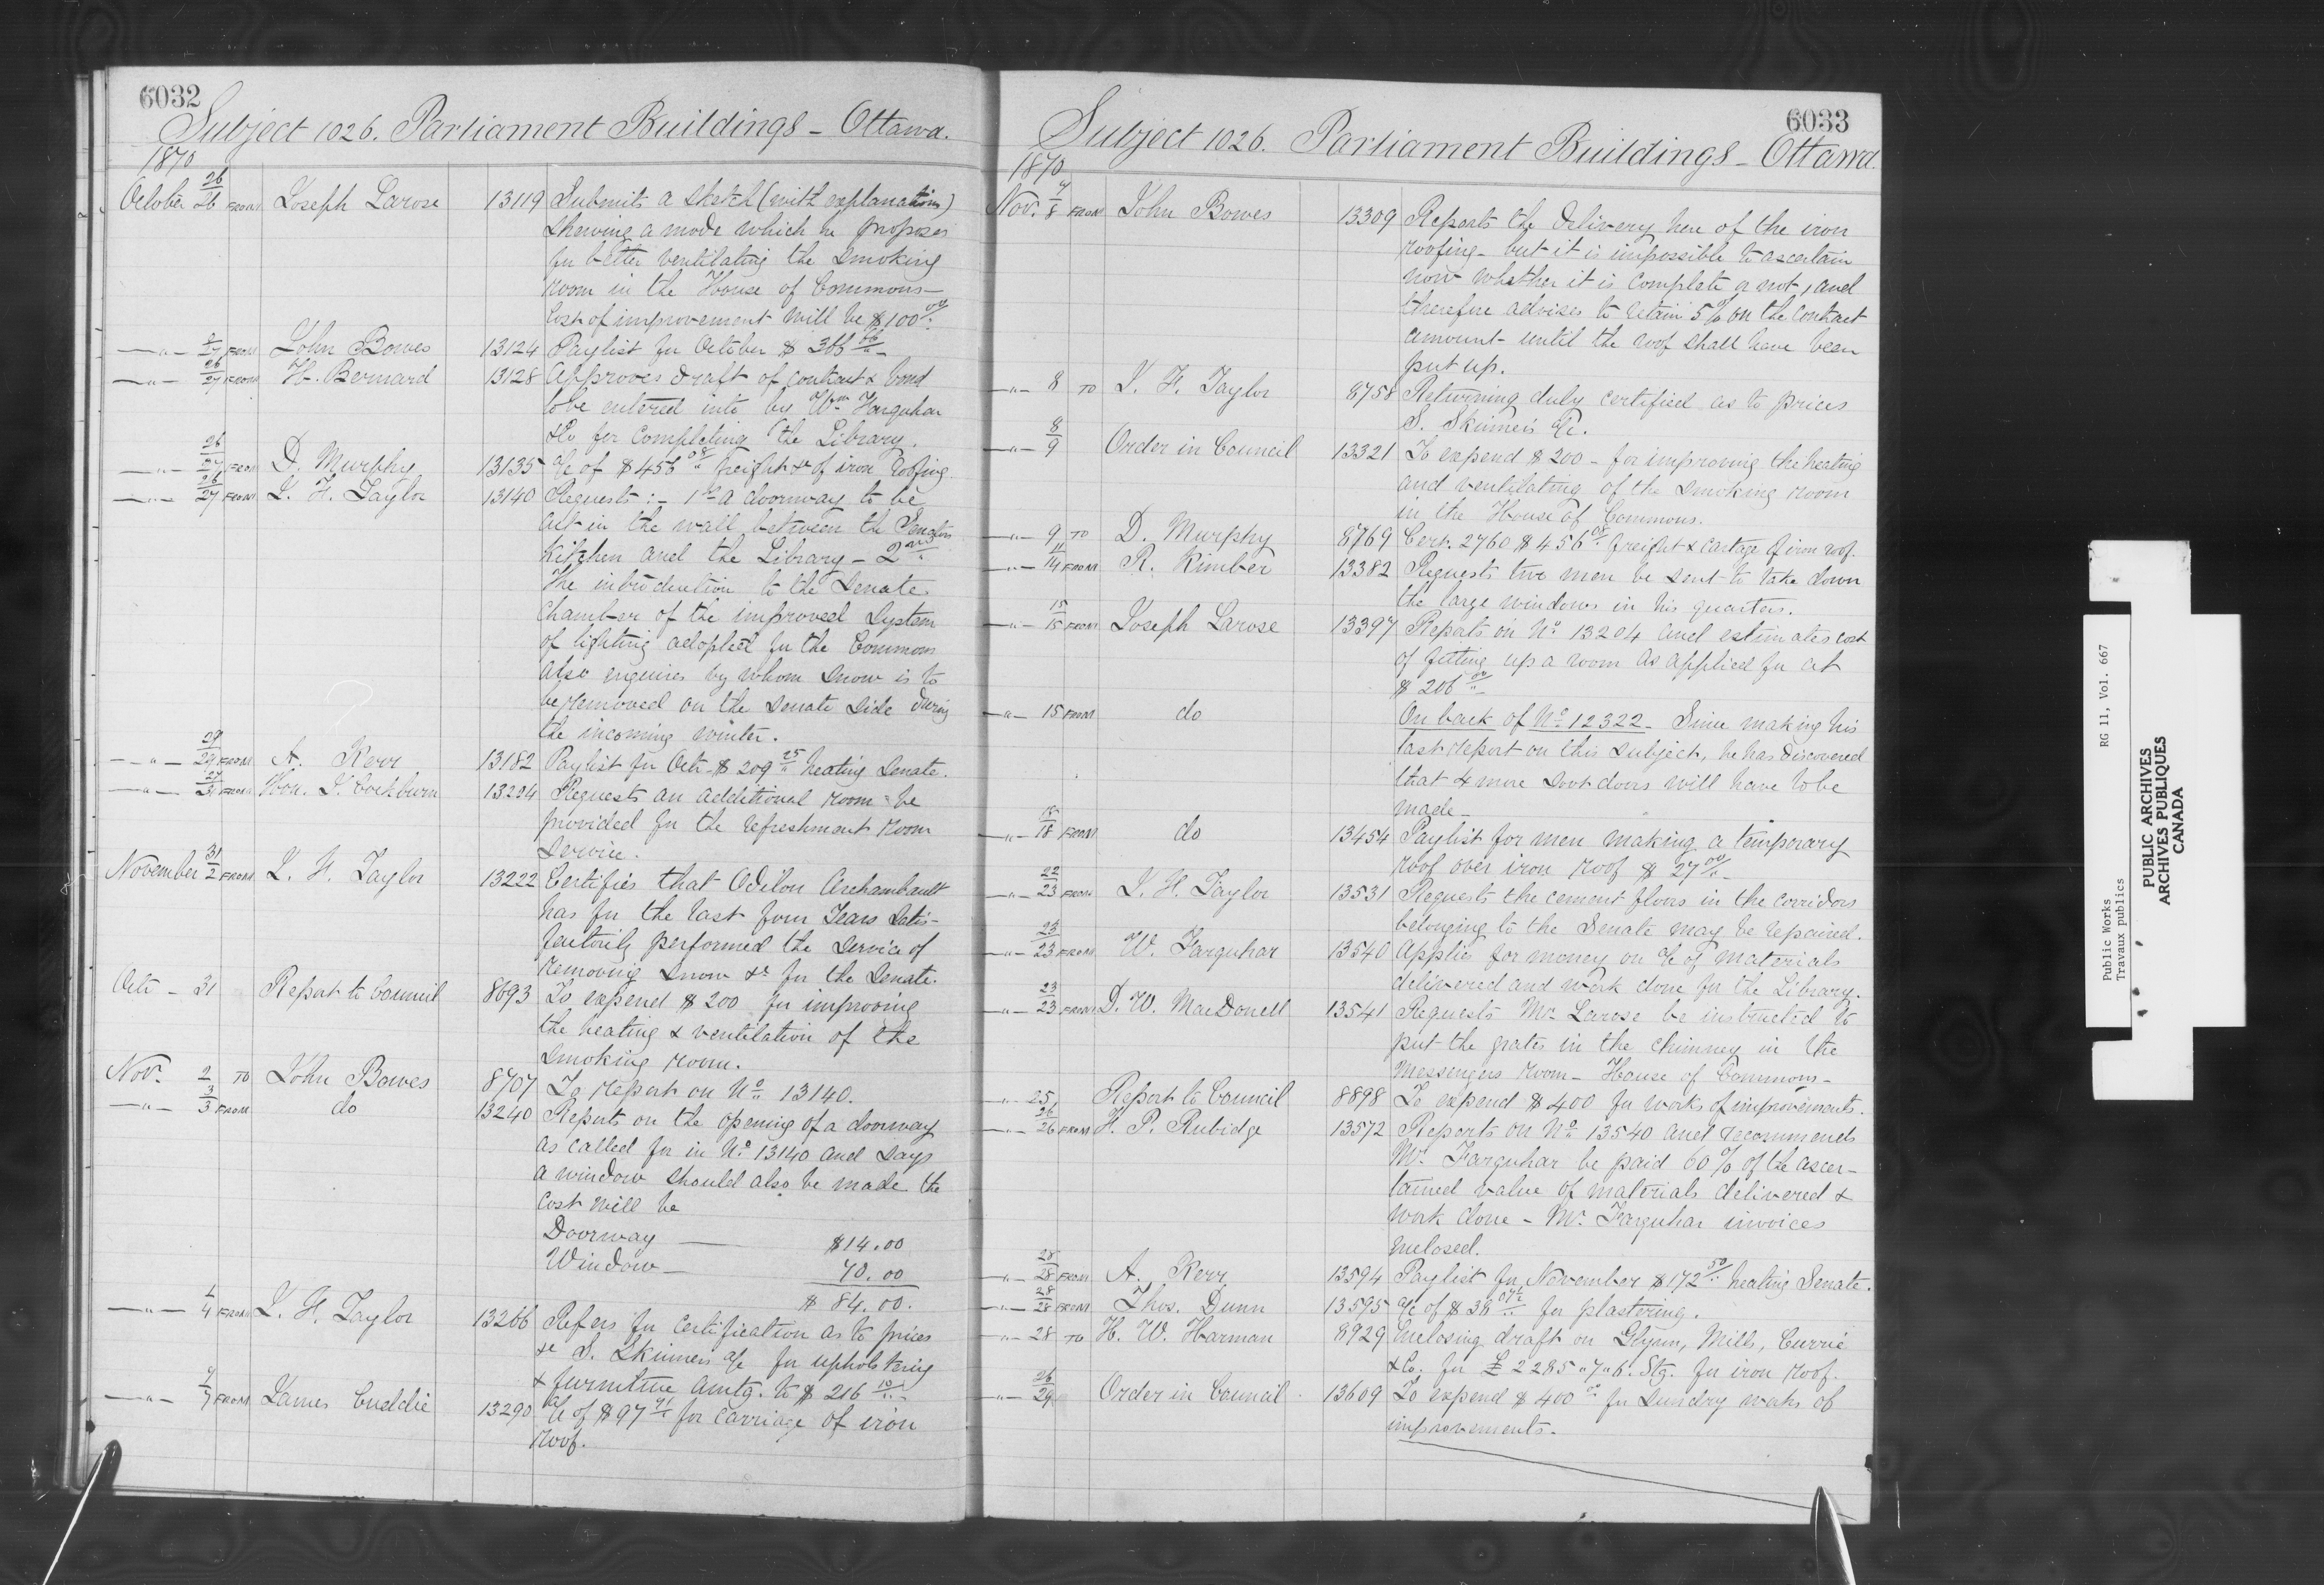 6032
Subject 1026. Parliament Buildings - Ottawa.
1870
October 26/26 FROM Joseph Larose 13119 Submits a sketch (with explanations)
shewing a mode which he proposes
for better ventilating the smoking
room in the House of Commons -
Cost of improvement will be $100 00/..
- " - /27 FROM John Bowes 13124 Paylist for October $
- " - 26/27 FROM H. Bernard 13128 Approves draft of contract & bond
to be entered into by Wm Farquhar
& Co for completing the Library.
- " - 26/27 FROM D. Murphy 13135 a/c of $456 08/.. freight &c of iron roofing.
- " - 26/27 FROM J. F. Taylor 13140 Requests :- 1st a doorway to be
cut in the wall between the Senators
Kitchen and the Library - 2nd
The introduction to the Senate
Chamber of the improved system
of lighting adopted for the Commons
also enquires by whom snow is to
be removed on the Senate side during
the incoming winter.
- " - 29/29 FROM A. Kerr 13182 Paylist for Octr - $209 25/.. heating Senate.
- " - 27/31 FROM Hon. J. Cockburn 13204 Requests an additional room be
provided for the refreshment room
service.
November 31/2 FROM J. F. Taylor 13222 Certifies that Odilon Archambault
has for the last four Years satis-
factorily performed the service of
removing snow &c for the Senate.
Octr - 31 Report to Council 8693 To expend $200 for improving
the heating & ventilation of the
smoking room.
Nov. 2 TO John Bowes 8707 To report on No 13140.
- " - 3/3 FROM do 13240 Reports on the opening of a doorway
as called for in No 13140 and says
a window should also be made the
cost will be
Doorway — $14.00
Window — 70.00
$ 84.00.
- " - 4 FROM J. F. Taylor 13266 Refers for certification as to prices
&c S. Skinners a/c for upholstering
& furniture amtg. to $216 10/..
- " - /7 FROM James Cuddie 13290 a/c of $97 91/.. for carriage of iron
roof.
6033
Subject 1026. Parliament Buildings - Ottawa.
1870
Nov. 7/8 FROM John Bowes 13309 Reports the delivery here of the iron
roofing - but it is impossible to ascertain
now whether it is complete or not, and
therefore advises to retain 5% on the contract
amount - until the roof shall have been
put up.
- " - 8 TO J. F. Taylor 8758 Returning duly certified as to prices
S. Skinner's a/c.
- " - 8/9 Order in Council 13321 To expend $200 - for improving the heating
and ventilating of the smoking room
in the House of Commons.
- " - 9 TO D. Murphy 8769 Cert. 2760 $456 08/.. freight & cartage of iron roof.
- " - 11/14 FROM R. Kimber 13382 Requests two men be sent to take down
the large windows in his quarters.
- " - 15/15 FROM Joseph Larose 13397 Reports on No 13204 and estimates cost
of fitting up a room as applied for at
$206 00/..
- " - 15 FROM do On back of No 12322 - Since making his
last report on this subject, he has discovered
that 4 more doors will have to be
made -
- " - 18/18 FROM do 13454 Paylist for men making a temporary
roof over iron roof $27 00/..
- " - 22/23 FROM J. F. Taylor 13531 Requests the cement floors in the corridors
belonging to the Senate may be repaired.
- " - 23/23 FROM W. Farquhar 13540 Applies for money on a/c of materials
delivered and work done for the Library.
- " - 23/23 FROM D. W. MacDonell 13541 Requests Mr Larose be instructed to
put the grates in the chimney in the
Messengers room - House of Commons -
- " - 25, Report to Council 8898 To expend $400 for works of improvements.
- " - 26/26 FROM F. P. Rubidge 13572 Reports on No 13540 and recommends
Mr. Farquhar be paid 60% of the ascer-
tained value of materials delivered &
work done - Mr. Farquhar invoices
enclosed.
- " - 28/28 FROM A. Kerr 13594 Paylist for November $172 50/.. heating Senate.
- " - 28/28 FROM Thos. Dunn 13595 a/c of $38 for plastering.
- " - 28 TO H. W. Harman 8929 Enclosing draft on Glynn, Mills, Currie
& Co. for £2285 " 7 " 6. Stg. for iron roof.
- " - 26/29 Order in Council 13609 To expend $400 00 for sundry works of
improvements.
Public Works RG 11, Vol. 667
Travaux publics
PUBLIC ARCHIVES
ARCHIVES PUBLIQUES
CANADA